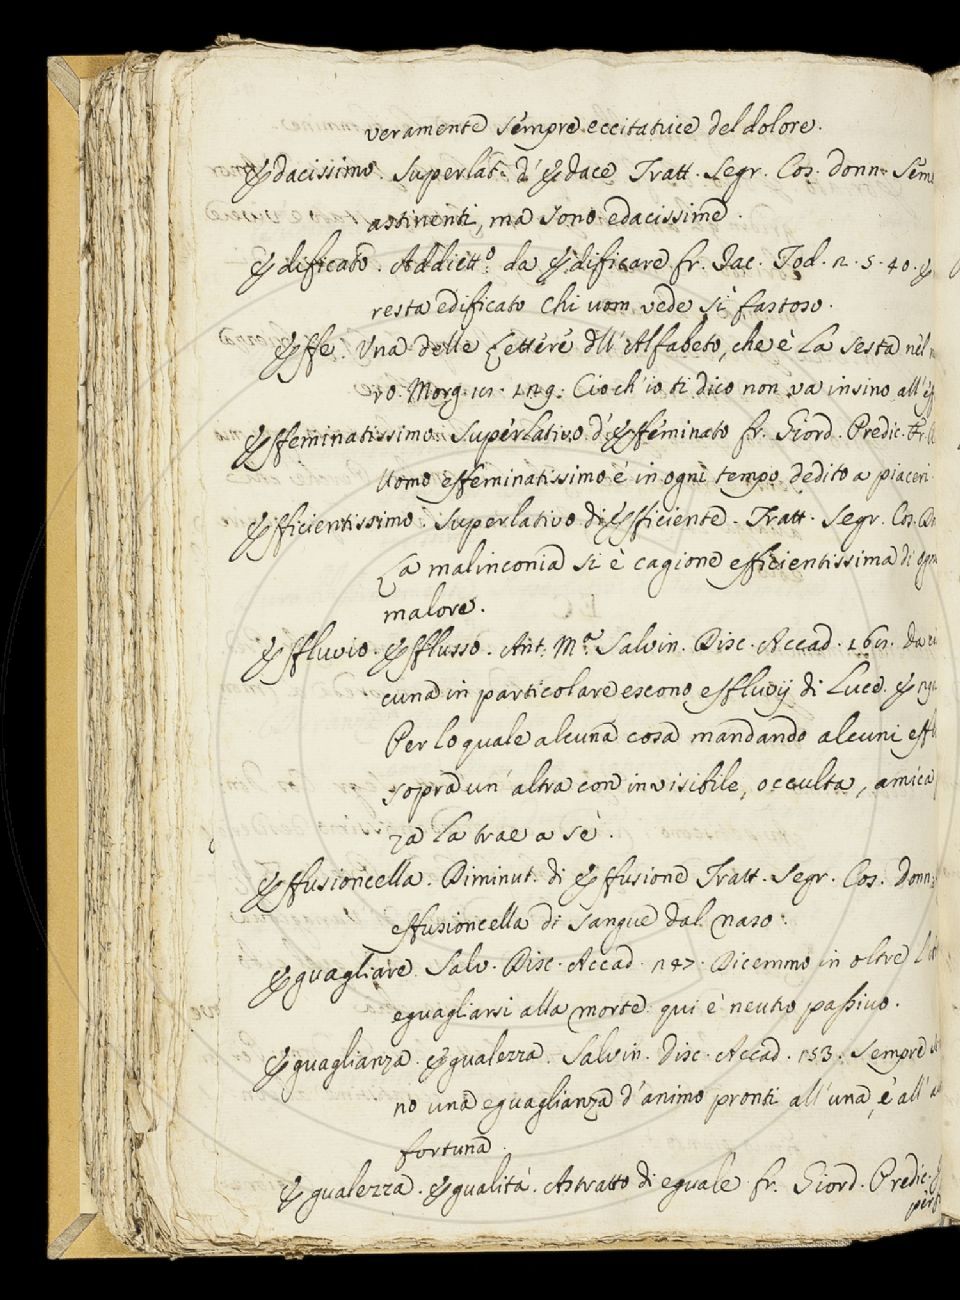 veramente sempre eccitatrice del dolore.
Edacissimo. Superlat. d'Edace Tratt. Segr. Cos. donn. Sem
astinenti, ma sono edacissime.
Edificato. Addiett.º da Edificare fr. Iac. Tod. 2. 5. 40. E
resta edificato Chi uom vede sì fastoso.
Effe. Una delle Lettere dll' Alfabeto, che è La sesta nel
vo. Morg. Ciò ch' io ti dico non va insino all'
Effeminatissimo. Superlativo d'Effeminato fr. Giord. Predic. Fr.
Uomo effeminatissimo è in ogni tempo dedito a piaceri
Efficientissimo. Superlativo di Efficiente. Tratt. Segr. Cos.
La malinconia si è cagione efficientissima di ogn
malore.
Effluvio. Efflusso. Ant. M.ª Salvin. Disc. Accad. Da
cuna in particolare escono effluvij di Luce. E
Per lo quale alcuna cosa mandando alcuni eff
sopra un' altra con invisibile, occulta, amica
za La trae a sè.
Effusioncella. Diminut. di Effusione Tratt. Segr. Cos. donn.
effusioncella di sangue dal naso.
Eguagliare. Salv. Disc. Accad. Dicemmo in oltre
eguagliarsi alla morte qui è neutro passivo.
Eguaglianza. Egualezza. Salvin. disc. Accad. 153. Sempre
no una eguaglianza d'animo pronti all' una, e all'
fortuna.
Egualezza. Egualità. Astratto di eguale fr. Giord. Predic.
per